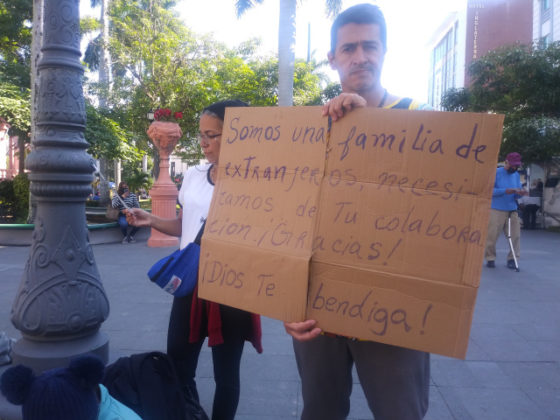 Somos una familia de
extranjeros, necesi-
tamos de Tu colabora
cion. ¡Gracias!
¡Dios Te bendiga!